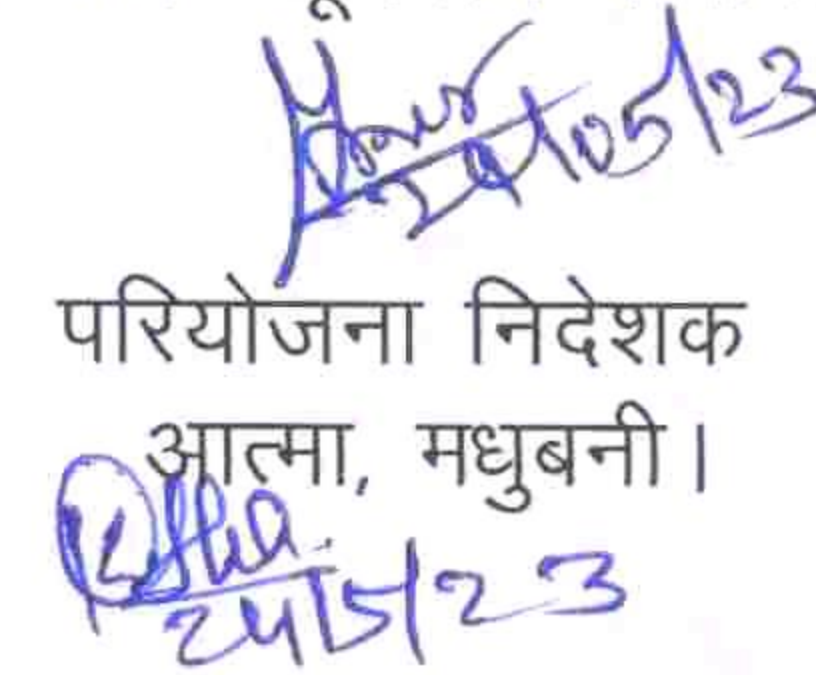 24/05/23
परियोजना निदेशक
आत्मा, मधुबनी।
24/5/23